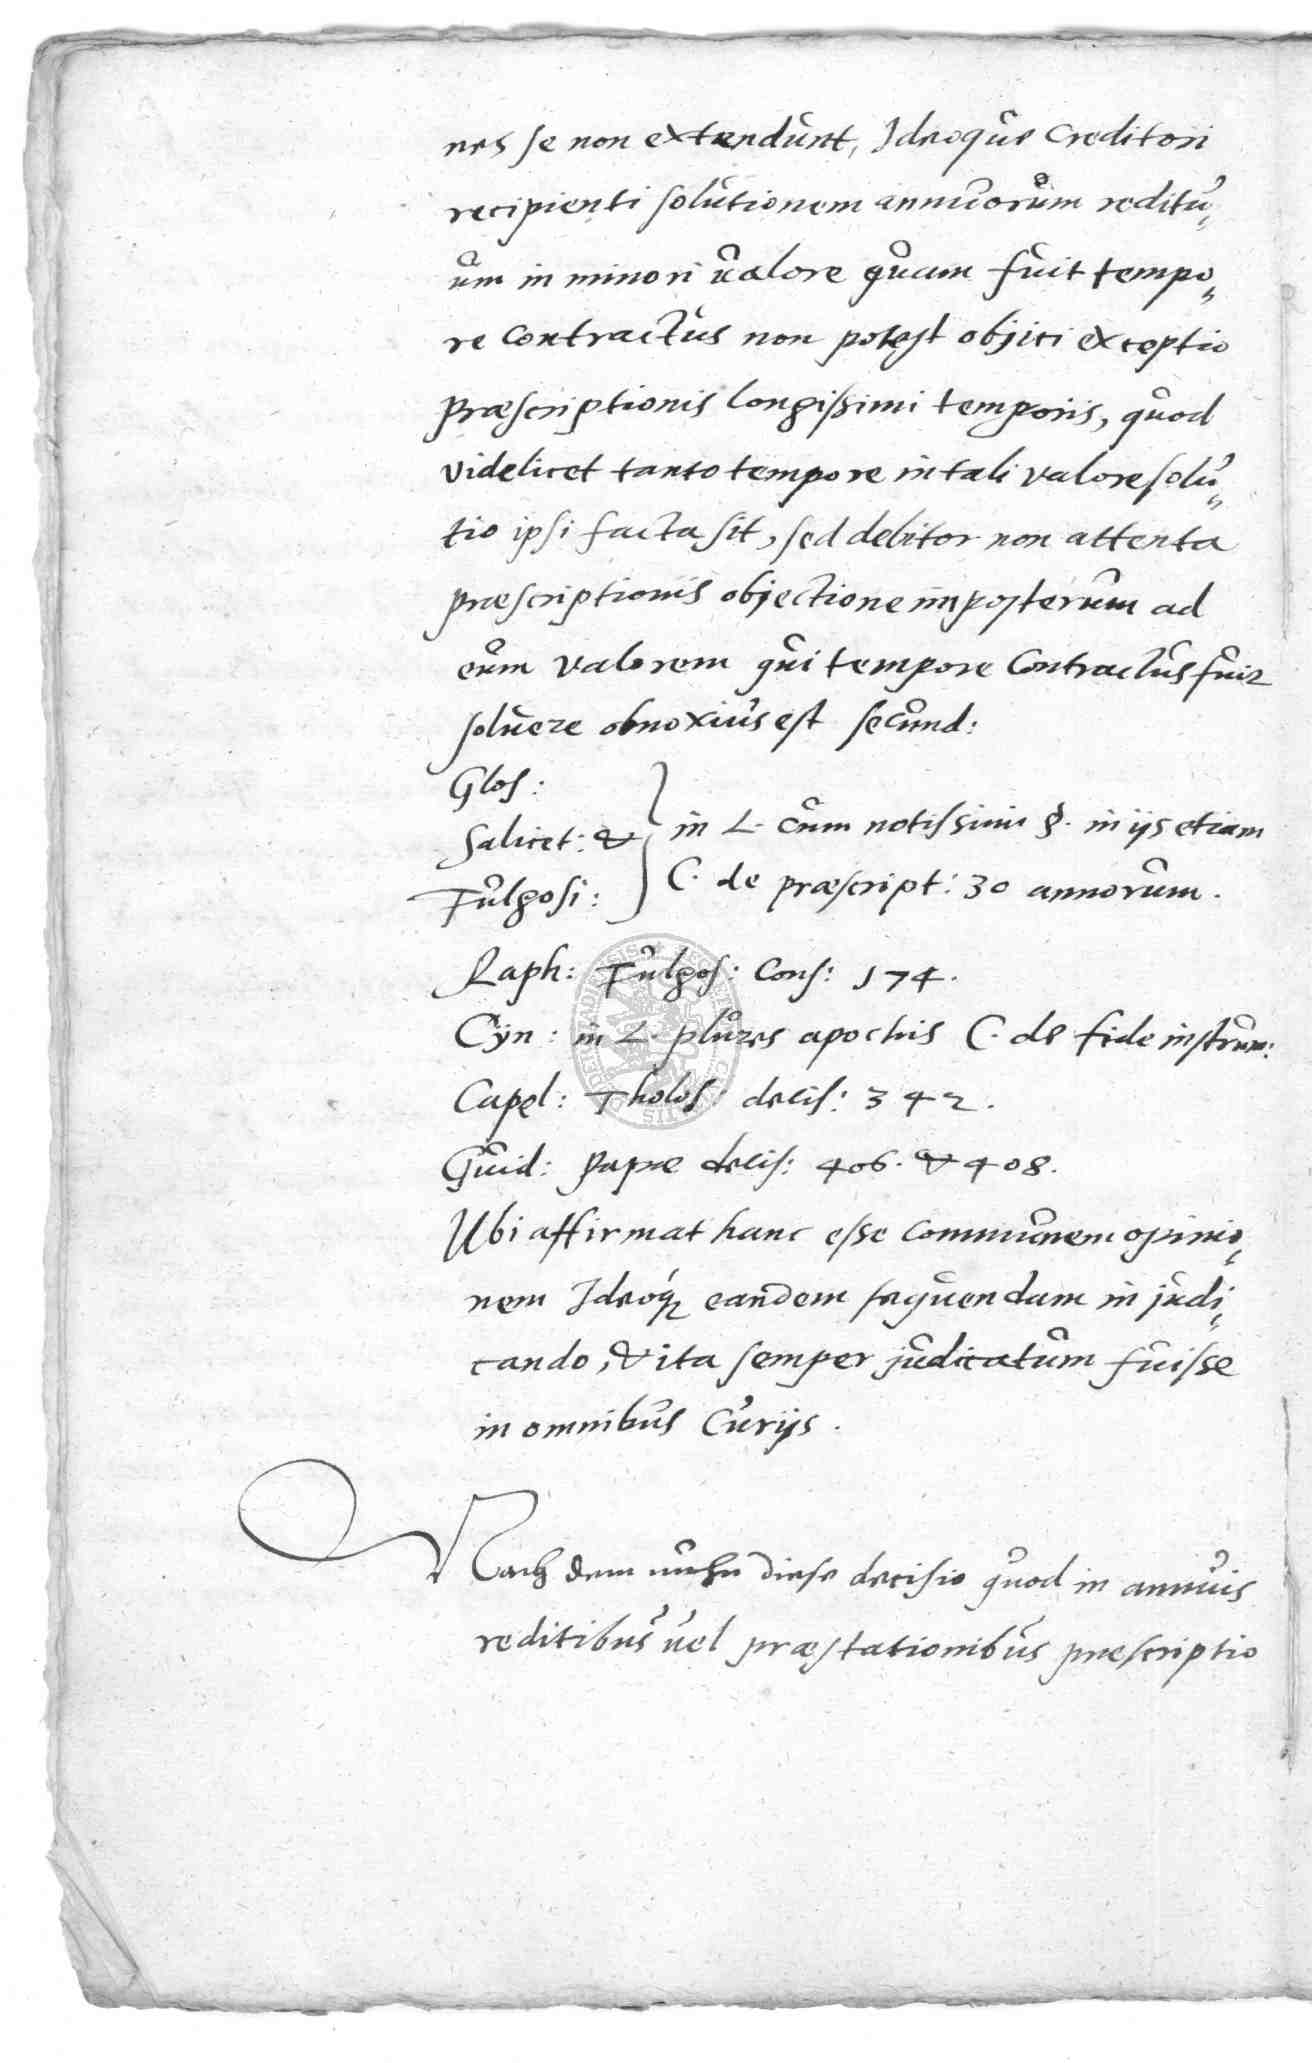 nes se non extendunt, Ideoque Creditori
recipienti solutionem annuorum reditu„
um in minori valore quam fuit tempo„
re contractus non potest objici exceptio
præscriptionis longissimi temporis, quod
videlicet tanto tempore in tali valore solu„
tio ipsi facta sit, sed debitor non attenta
præscriptionis objectione imposterum ad
eum valorem qui tempore Contractus fuit
solvere obnoxius est secund:
Glos:
Salicet: &
Fulgosi:
in L. cum notissimi §. in ijs etiam
C. de præscript: 30 annorum.
Raph: Fulgos: Cons: 174.
Cyn: in L. plures apochis C. de fide instrum:
Capel: Tholos: decis: 342.
Guid: Papæ decis: 406. & 408.
Ubi affirmat hanc esse communem opinio„
nem Ideoq3 eandem sequendam in judi„
cando, & ita semper judicatum fuisse
in omnibus Curijs.
Nach dem nuhn diese decisio quod in annuis
reditibus vel præstationibus præscriptio